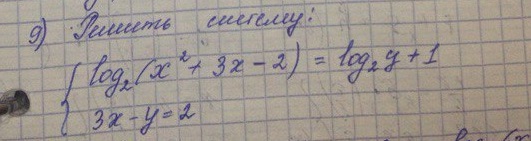 9) Решить систему:
{ log₂(x² + 3x - 2) = log₂y + 1
3x - y = 2